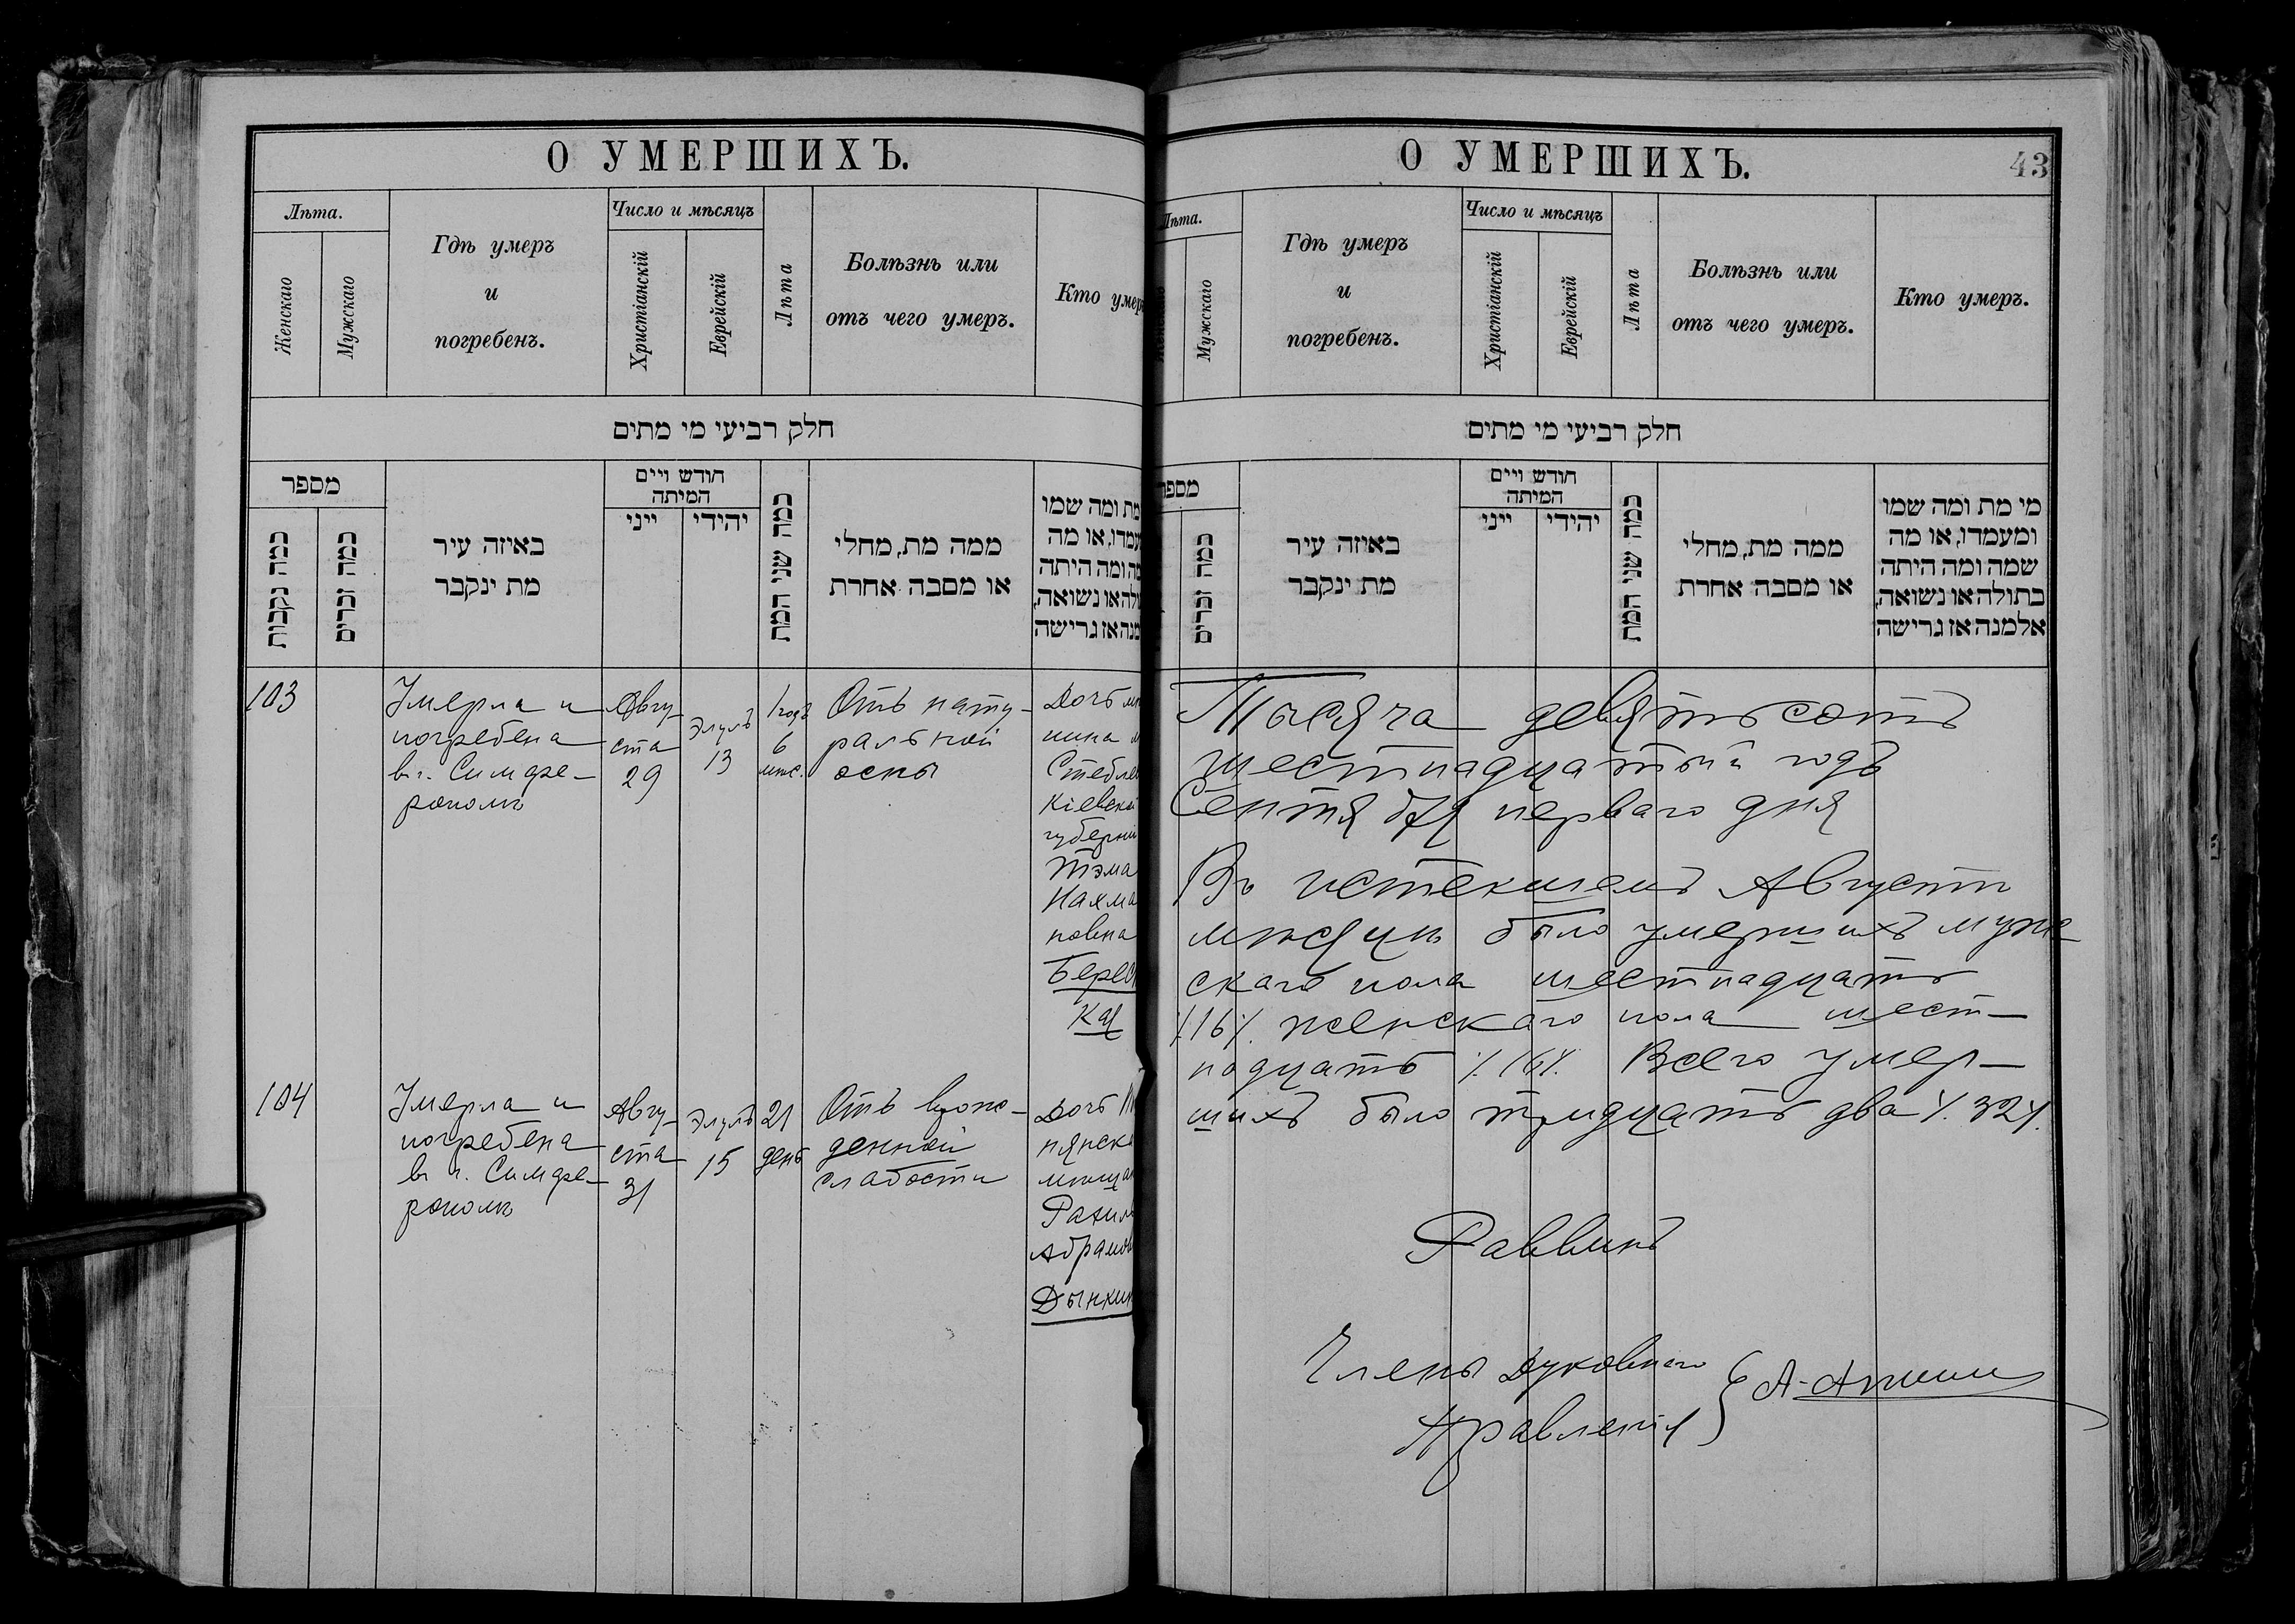 О УМЕРШИХЪ.
Лѣта.
Женскаго
Мужскаго
Гдѣ умеръ
и
погребенъ.
Число и мѣсяцъ
Христіанскій
Еврейскій
Лѣта
Болѣзнь или
отъ чего умеръ.
Кто умеръ
חלק רביעי מי מתים
מספר
כמה נקבות
כמה זכרים
באיזה עיר
מת ינקבר
חודש ויים
המיתה
ייני
יהידי
כמה שני המת
ממה מת, מחלי
או מסבה אחרת
מת ומה שמו
עמדו, או מה
מה ומה היתה
לה או נשואה,
מנה אז גרישה
103
Умерла и
погребена
в г. Симфе-
рополѣ
Авгу-
ста
29
Элулъ
13
1 годъ
6
мѣс.
Отъ нату-
ральной
оспы
Дочь мѣ
щина м
Стебле
Кіевской
губерніи
Тэма
Нахма
новна
Берес
кая
104
Умерла и
погребена
в г. Симфе-
рополѣ
Авгу-
ста
31
Элулъ
15
21
день
Отъ врож-
денной
слабости
Дочь
нянска
мѣщан
Рахиль
Абрамов
Дынкин
О УМЕРШИХЪ.
43
Лѣта.
Мужскаго
Гдѣ умеръ
и
погребенъ.
Число и мѣсяцъ
Христіанскій
Еврейскій
Лѣта
Болѣзнь или
отъ чего умеръ.
Кто умеръ.
חלק רביעי מי מתים
מספר
כמה זכרים
באיזה עיר
מת ינקבר
חודש ויים
המיתה
ייני
יהידי
כמה שני המת
ממה מת, מחלי
או מסבה אחרת
מי מת ומה שמו
ומעמדו, או מה
שמה ומה היתה
בתולה או נשואה,
אלמנה אז גרישה
Тысяча девятьсотъ
шестнадцатый годъ
Сентября перваго дня
Въ истекшемъ Августѣ
мѣсяцѣ было умершихъ муж-
скаго пола шестнадцать
/.16/. женскаго пола шест-
надцать /.16/. Всего умер-
шихъ было тридцать два /.32/.
Раввинъ
Члены Духовнаго
Правленія } А.